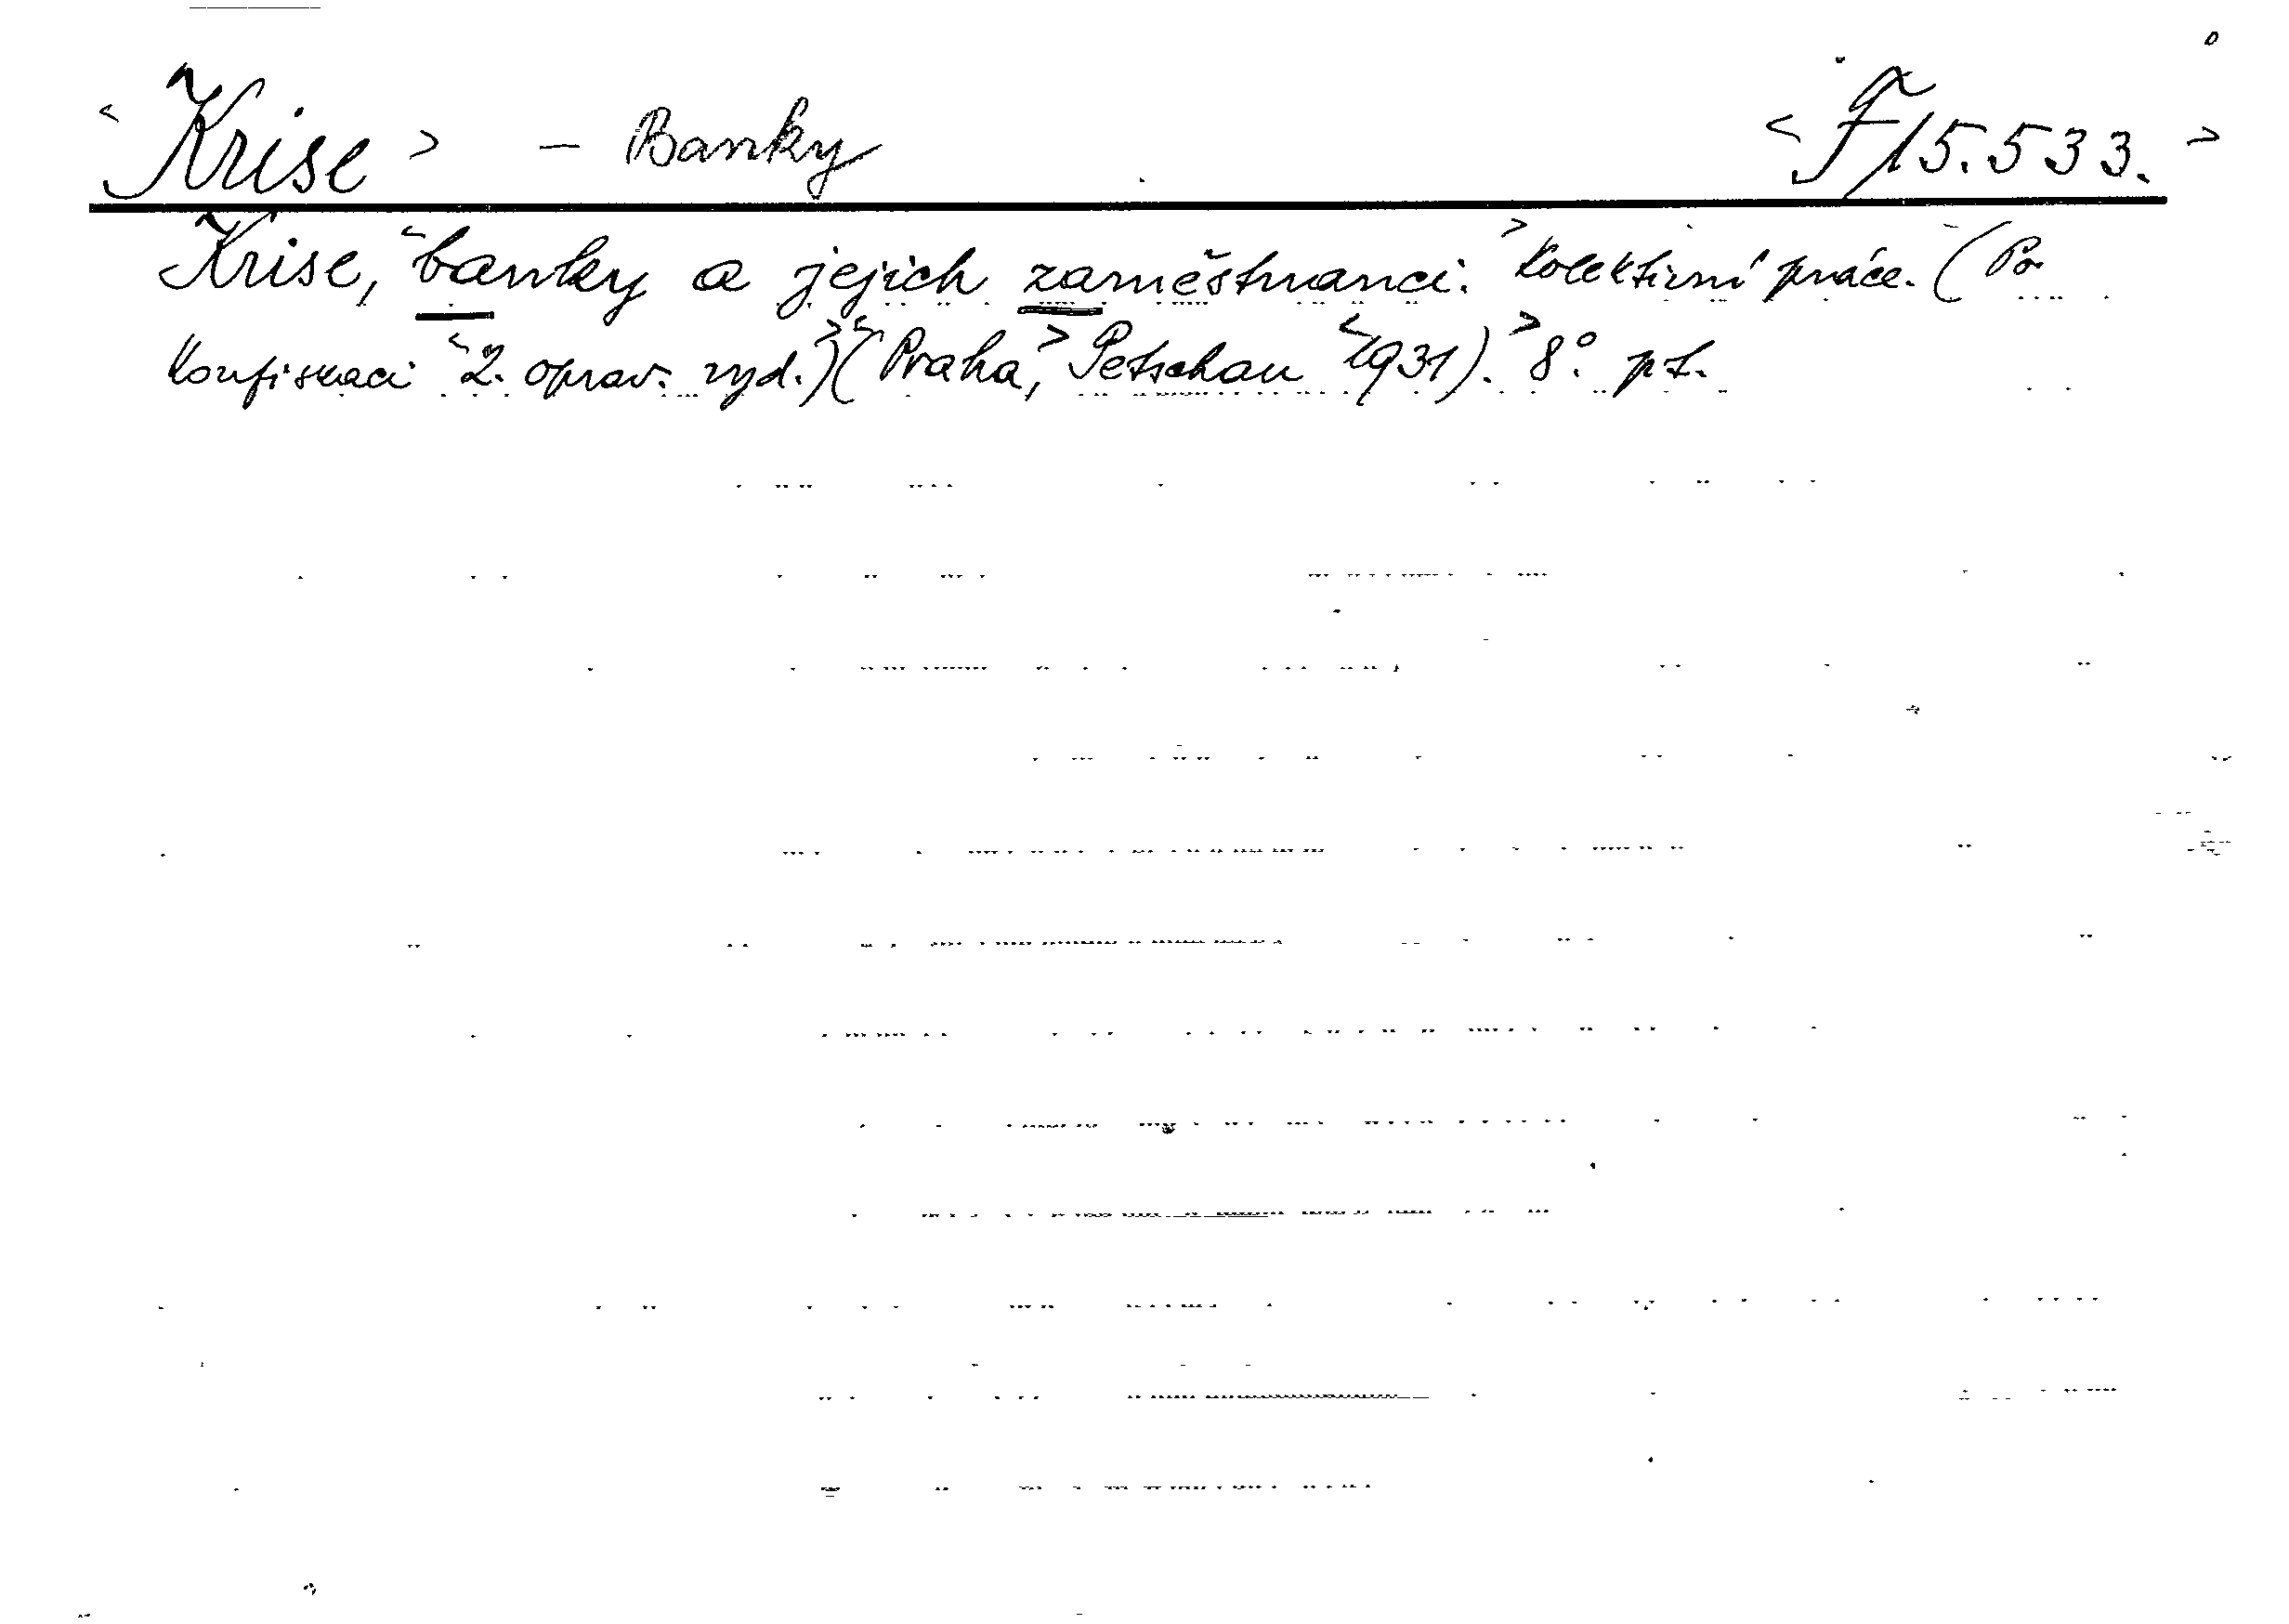 <Krise> - Banky <F 15.533.>
Krise, <banky a jejich zaměstnanci.> Kolektivní práce. (Po
konfiskaci <2. oprav. vyd.)> <(Praha,> Petschau <1931).> 8°. pt.